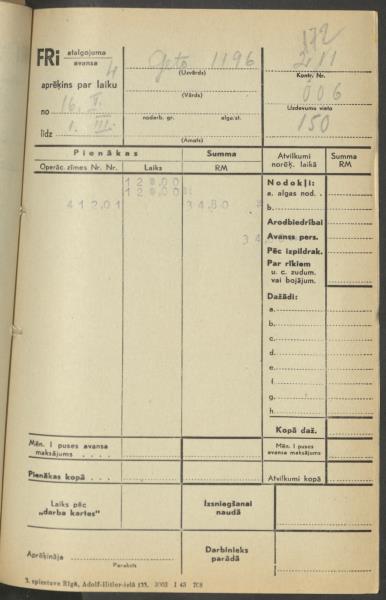 172
FRi atalgojuma avansa 4
Geto 1196
211
(Uzvārds)
Kontr. Nr.
aprēķins par laiku
(Vārds)
006
no 16. II.
nodarb. gr. alga/st.
Uzdevumu vieta
līdz 1. III.
150
(Amats)
Pienākas
Summa
Atvilkumi norēķ. laikā
Summa RM
Operāc. zīmes Nr. Nr.
Laiks
RM
12000
Nodokļi:
12000
a. algas nod.
41201
3480
b.
Arodbiedrībai
34
Avanss pers.
Pēc izpildrak.
Par rīkiem
u. c. zudum.
vai bojājum.
Dažādi:
a.
b.
c.
d.
e.
f.
g.
h.
Kopā daž.
Mēn. I puses avansa
maksājums
Mēn. I puses
avansa maksājums
Pienākas kopā
Atvilkumi kopā
Laiks pēc
„darba kartes"
Izsniegšanai
naudā
Aprēķināja
Paraksts
Darbinieks
parādā
3. spiestuve Rīgā, Adolf-Hitler-ielā 133. 3002 I 43 708